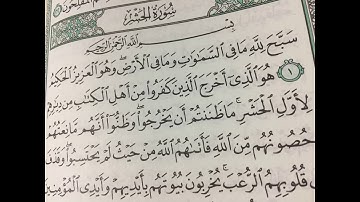 سُورَةُ الحَشْرِ
بِسْمِ اللَّهِ الرَّحْمَٰنِ الرَّحِيمِ
سَبَّحَ لِلَّهِ مَا فِي السَّمَاوَاتِ وَمَا فِي الْأَرْضِ ۖ وَهُوَ الْعَزِيزُ الْحَكِيمُ
١ هُوَ الَّذِي أَخْرَجَ الَّذِينَ كَفَرُوا مِنْ أَهْلِ الْكِتَابِ مِن دِيَارِهِمْ
لِأَوَّلِ الْحَشْرِ ۚ مَا ظَنَنتُمْ أَن يَخْرُجُوا ۖ وَظَنُّوا أَنَّهُم مَّانِعَتُهُمْ
حُصُونُهُم مِّنَ اللَّهِ فَأَتَاهُمُ اللَّهُ مِنْ حَيْثُ لَمْ يَحْتَسِبُوا ۖ وَقَذَفَ
قُلُوبِهِمُ الرُّعْبَ ۚ يُخْرِبُونَ بُيُوتَهُم بِأَيْدِيهِمْ وَأَيْدِي الْمُؤْمِنِينَ